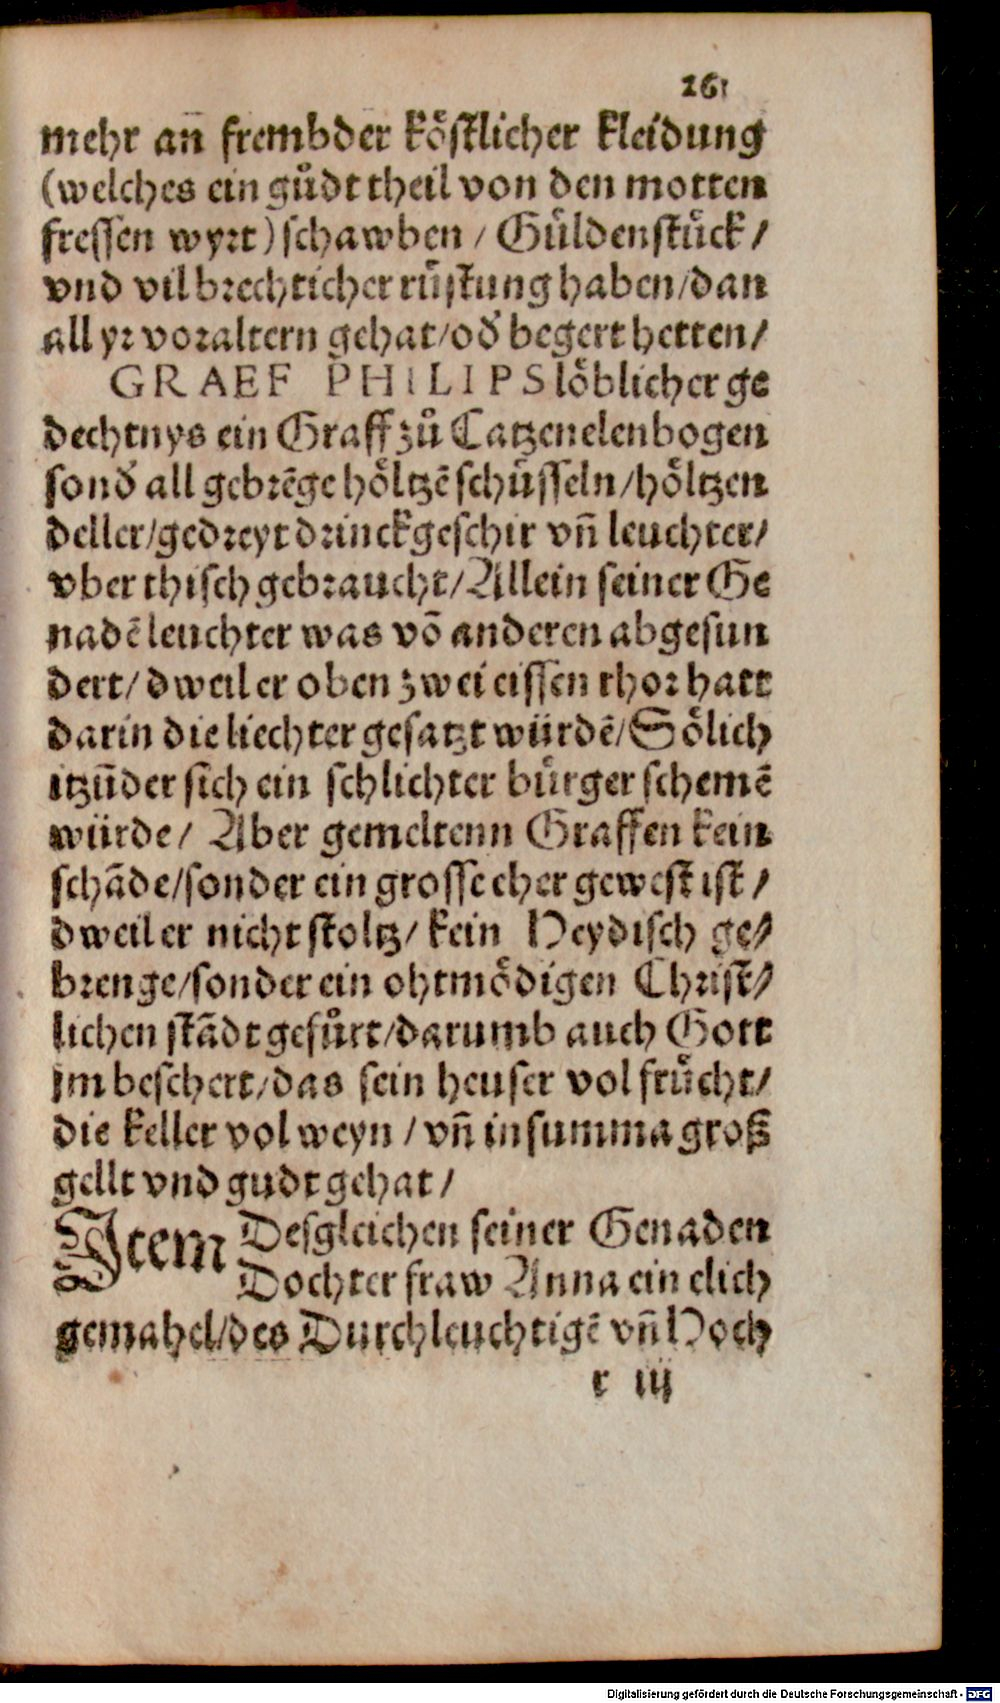 261
mehr an frembder köstlicher kleidung
(welches ein gůdt theil von den motten
fressen wyrt) schawben / Güldenstück /
vnd vil brechticher rüstung haben / dan
all yr voraltern gehat / od̕ begert hetten /
GRAEF PHILIPS löblicher ge
dechtnys ein Graff zů Catzenelenbogen
sond̕ all gebrēge höltzē schüsseln / höltzen
deller / gedreyt drinckgeschir vñ leuchter /
vber thisch gebraucht / Allein seiner Ge
nadē leuchter was vō anderen abgesun
dert / dweil er oben zwei eissen rhor hatt
darin die liechter gesatzt würdē / Sölich
itzūder sich ein schlichter bürger schemē
würde / Aber gemeltenn Graffen kein
schāde / sonder ein grosse eher gewest ist /
dweil er nicht stoltz / kein Heydisch ge⸗
brenge / sonder ein ohtmödigen Christ⸗
lichen stādt gefürt / darumb auch Gott
jm beschert / das sein heuser vol frücht /
die keller vol weyn / vñ in summa groß
gellt vnd gudt gehat /
Item Desgleichen seiner Genaden
Dochter fraw Anna ein elich
gemahel / des Durchleuchtigē vñ Hoch
r iij
Digitalisierung gefördert durch die Deutsche Forschungsgemeinschaft - DFG